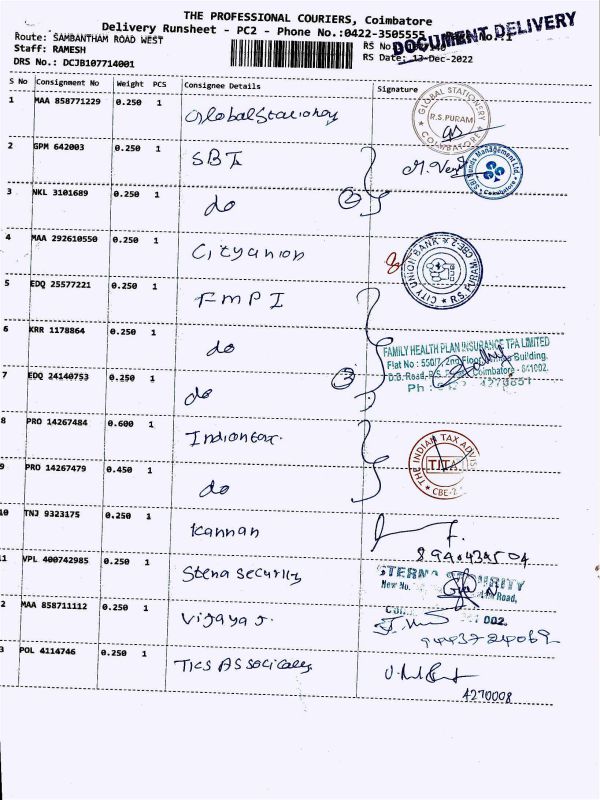 THE PROFESSIONAL COURIERS, Coimbatore
Delivery Runsheet - PC2 - Phone No.:0422-3505555
DOCUMENT DELIVERY
Route: SAMBANTHAM ROAD WEST
RS No
Staff: RAMESH
RS Date: 13-Dec-2022
DRS No.: DCJB107714001
S No Consignment No Weight PCS Consignee Details Signature
1 MAA 858771229 0.250 1 Global Stationary
GLOBAL STATIONERY R.S.PURAM COIMBATORE
2 GPM 642003 0.250 1 SBI
SBI Funds Management Ltd. Coimbatore
3 NKL 3101689 0.250 1 do
2
4 MAA 292610550 0.250 1 Cityunion
CITY UNION BANK R.S. PURAM CBE-2
5 EDQ 25577221 0.250 1 FMPI
6 KRR 1178864 0.250 1 do
FAMILY HEALTH PLAN INSURANCE TPA LIMITED
Flat No : 550/7, 2nd Floor, Building,
D.B. Road, R.S. Coimbatore - 641002.
Ph :
7 EDQ 24140753 0.250 1 do
3
8 PRO 14267484 0.600 1 Indiantax.
THE INDIAN TAX ADVIS
CBE-2
9 PRO 14267479 0.450 1 do
10 TNJ 9323175 0.250 1 Kannan
11 VPL 400742985 0.250 1 Stena Security
New No. Road,
002.
2 MAA 858711112 0.250 1 Vijaya J.
3 POL 4114746 0.250 1 TKS Associates
4270008